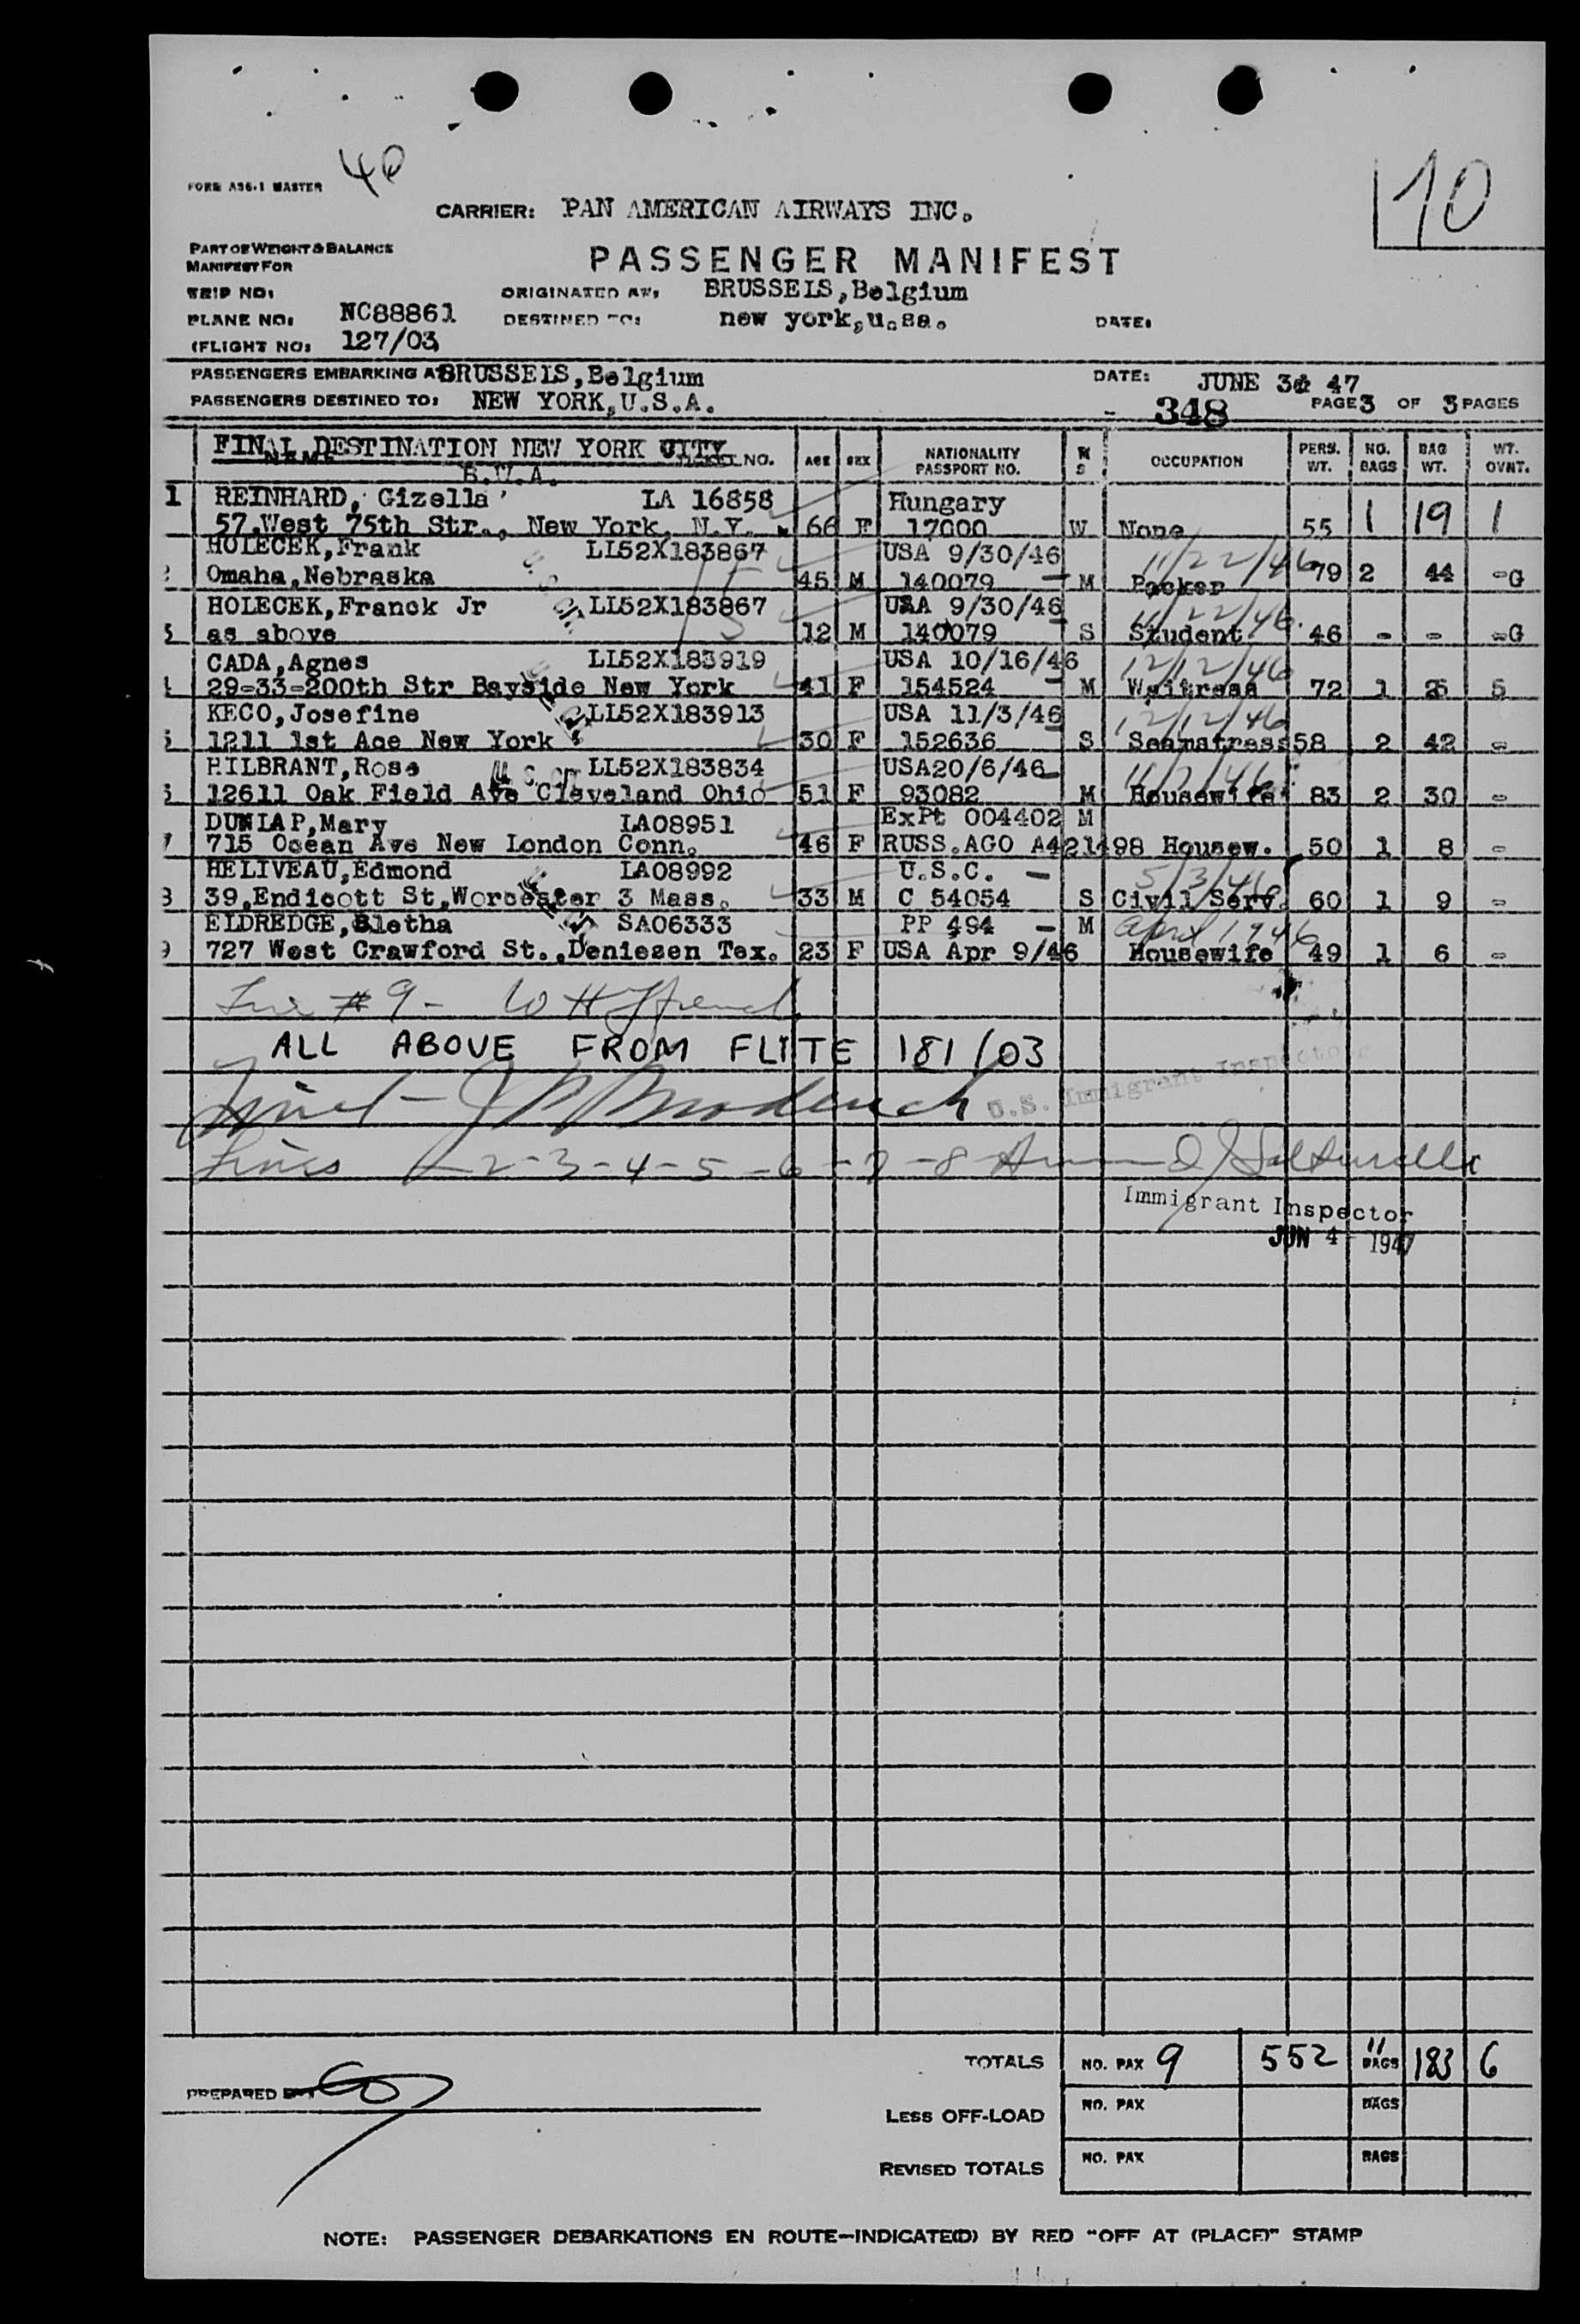 40
FORM A36.1 MASTER
10
CARRIER: PAN AMERICAN AIRWAYS INC.
PART OF WEIGHT & BALANCE
MANIFEST FOR
PASSENGER MANIFEST
TRIP NO:
ORIGINATED AT: BRUSSELS, Belgium
PLANE NO: NC88861
DESTINED TO: new york, u.sa.
DATE:
(FLIGHT NO: 127/03
PASSENGERS EMBARKING AT BRUSSELS, Belgium
DATE: JUNE 3d 47
PASSENGERS DESTINED TO: NEW YORK, U.S.A.
348 PAGE 3 OF 3 PAGES
FINAL DESTINATION NEW YORK CITY
NAME TICKET NO. AGE SEX NATIONALITY PASSPORT NO. M S OCCUPATION PERS. WT. NO. BAGS BAG WT. WT. OVNT.
E.U.A.
1 REINHARD, Gizella LA 16858 Hungary
57,West 75th Str., New York, N.Y. 66 F 17000 W None 55 1 19 1
HOLECEK,Frank LL52X183867 USA 9/30/46 11/22/46
2 Omaha,Nebraska 45 M 140079 - M Packer 79 2 44 -G
HOLECEK,Franck Jr LL52X183867 USA 9/30/46 11/22/46.
3 as above 12 M 140079 - S Student 46 - - -G
CADA,Agnes LL52X183919 USA 10/16/46 12/12/46
4 29-33-200th Str Bayside New York 41 F 154524 - M Waitress 72 1 25 5
KECO,Josefine LL52X183913 USA 11/3/46 12/12/46
5 1211 1st Ace New York 30 F 152636 - S Seamstress 58 2 42 -
HILBRANT,Rose U.S.CIT LL52X183834 USA20/6/46 - 11/7/46
6 12611 Oak Field Ave Cleveland Ohio 51 F 93082 M Housewife 83 2 30 -
DUNLAP,Mary LA08951 ExPt 004402 M
7 715 Ocean Ave New London Conn. 46 F RUSS.AGO A421498 Housew. 50 1 8 -
HELIVEAU,Edmond LA08992 U.S.C. - 5/3/46
8 39,Endicott St,Worcester 3 Mass. 33 M C 54054 S Civil Serv. 60 1 9 -
ELDREDGE,Bletha SA06333 PP 494 - M April 1946
9 727 West Crawford St.,Deniesen Tex. 23 F USA Apr 9/46 Housewife 49 1 6 -
Line # 9 - W H Ffrench
ALL ABOVE FROM FLITE 181/03
U.S. Immigrant Inspector
Lines 1-2-3-4-5-6-7-8
Immigrant Inspector
JUN 4 - 1947
TOTALS NO. PAX 9 552 11 BAGS 183 6
PREPARED BY:
LESS OFF-LOAD NO. PAX BAGS
REVISED TOTALS NO. PAX BAGS
NOTE: PASSENGER DEBARKATIONS EN ROUTE—INDICATE(D) BY RED "OFF AT (PLACE)" STAMP